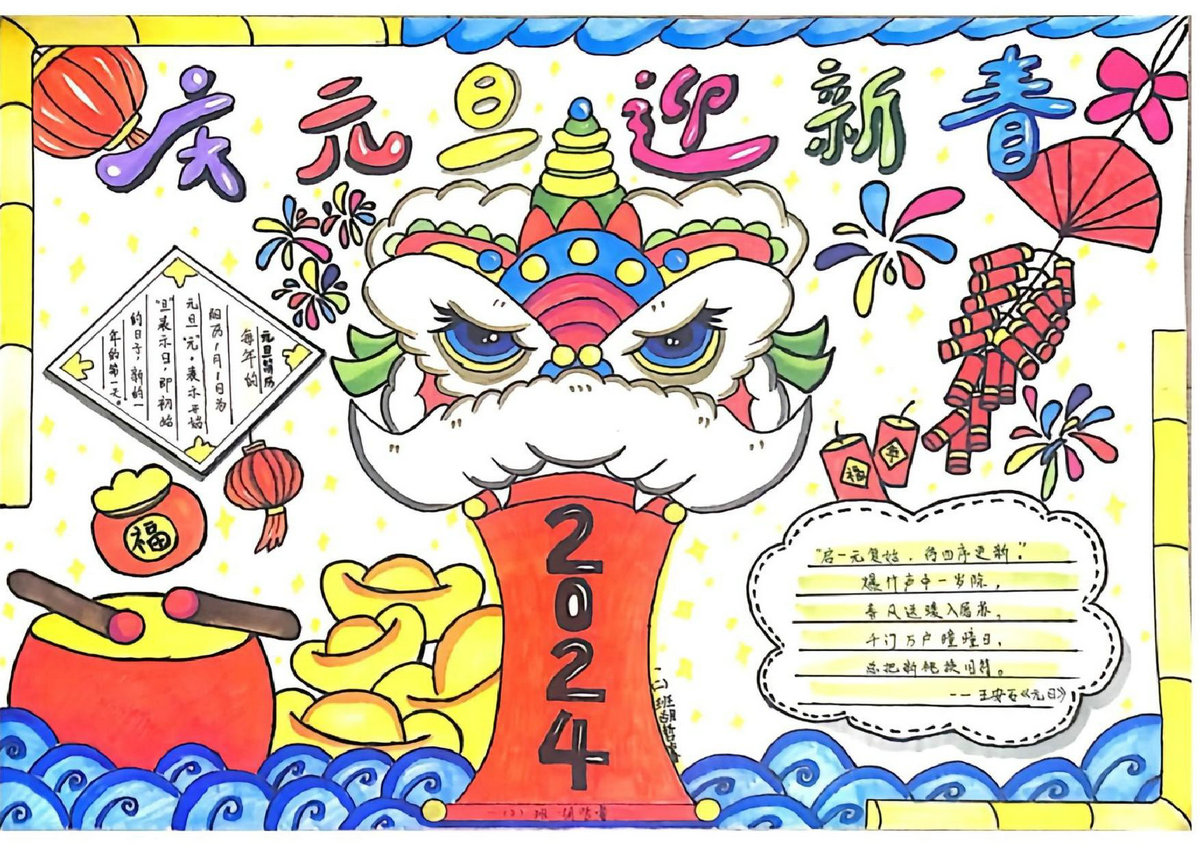 庆元旦迎新春
元旦简历
每年的
阳历1月1日为
元旦"元"表示开始
"旦"表示日,即初始
的日子,新的一
年的第一天。
福
福
2024
"启一元复始,待四序更新."
爆竹声中一岁除,
春风送暖入屠苏,
千门万户曈曈日,
总把新桃换旧符。
--王安石《元日》